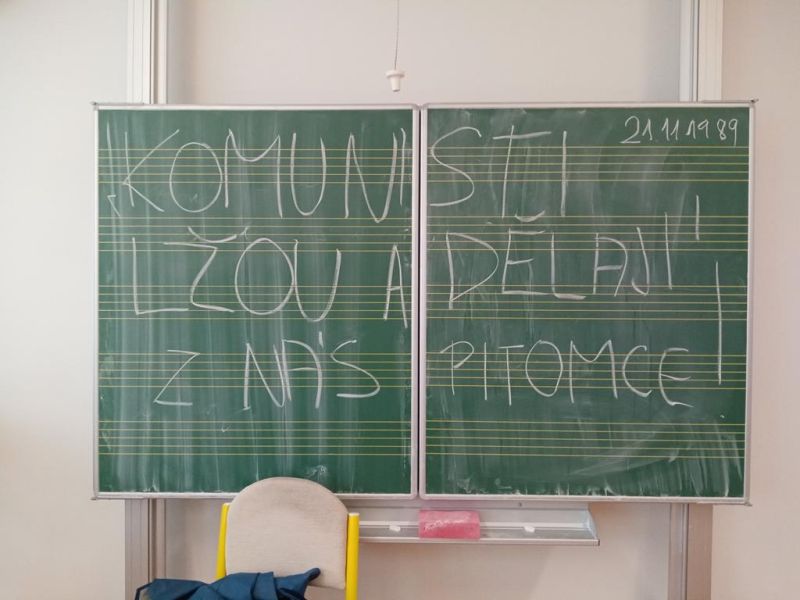 21.11.1989
„KOMUNISTI
LŽOU A DĚLAJÍ
Z NÁS PITOMCE!